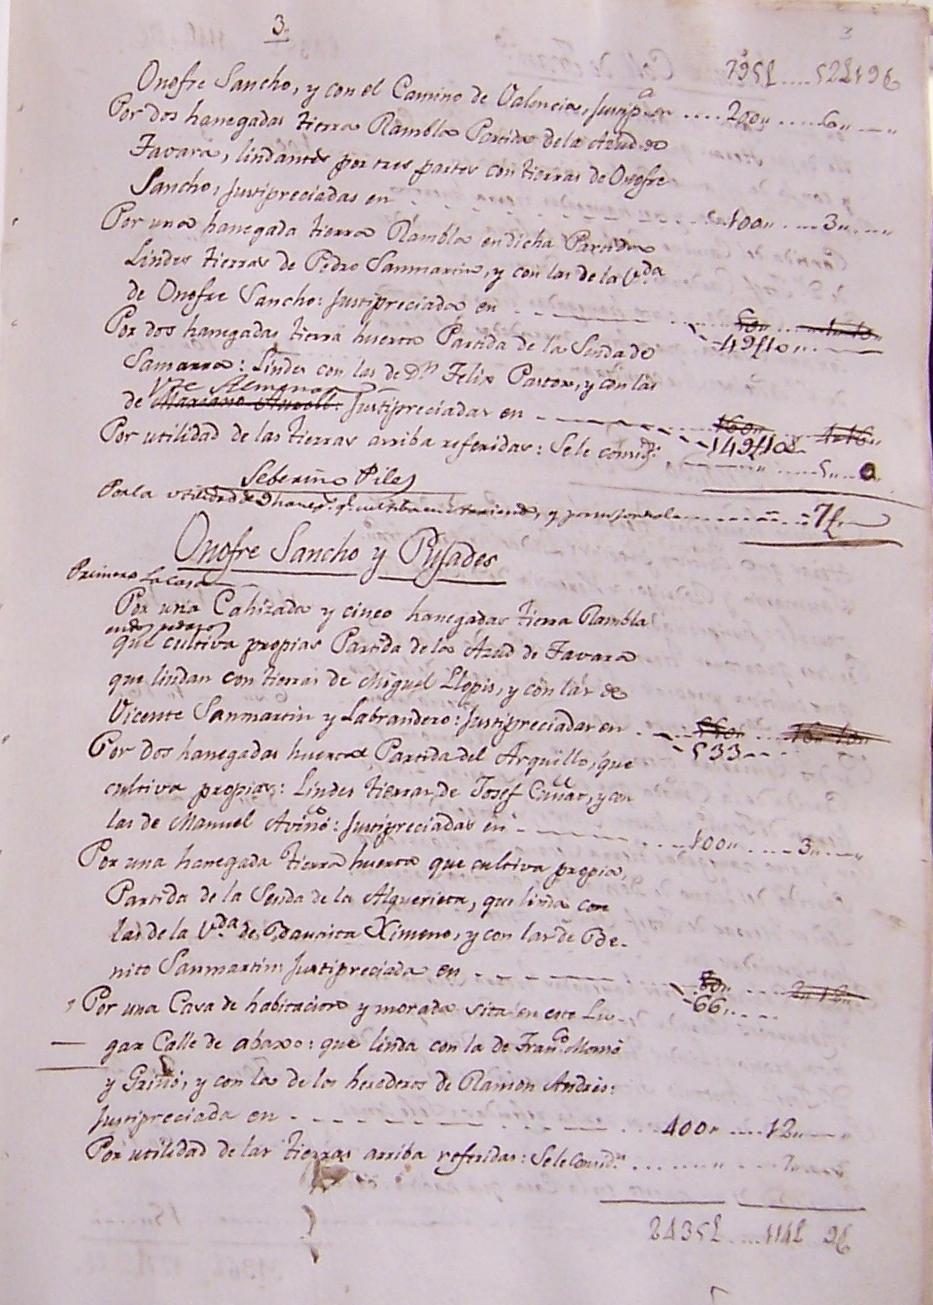 3.
3
795£ .... 52£19 6
Onofre Sancho, y con el Camino de Valencia, justip.a en .... 200,, ..... 6,, — ,,
Por dos hanegadas tierra Rambla Partida de la Azud de
Favara, lindantes por tres partes con tierras de Onofre
Sancho, justipreciadas en ..... 100,, .... 3,, ....
Por una hanegada tierra Rambla en dicha Partida
Lindes tierras de Pedro Sanmartin, y con las de la V.da
de Onofre Sancho: justipreciada en
49£10,,
Por dos hanegadas tierra huerta Partida de la Senda de
Samarra: Lindes con las de D.n Felix Pastor, y con las
V.te Almenar
de Mariano Anroll: justipreciadas en
149£10
Por utilidad de las tierras arriba referidas: Sele consid.n ,, ..... 5,, 0
Seberino Piles
Por la utilidad de 9 haneg.s q.e cultiva en arriendo, y ..... 7£
Onofre Sancho y Pujades
Primero La casa
Por una Cahizada y cinco hanegadas tierra Rambla
en dos pedazos
que cultiva propias Partida de la Azud de Favara
que lindan con tierras de Miguel Llopis, y con las de
Vicente Sanmartin y Labrandero: justipreciadas en
533
Por dos hanegadas huerta Partida del Arquillo, que
cultiva propias: Lindes tierras de Josef Cuñat, y con
las de Manuel Aviñó: justipreciadas en .... 100,, .... 3,, —,,
Por una hanegada tierra huerta que cultiva propia,
Partida de la Senda de la Alquerieta, que linda con
las de la V.da de Bautista Ximeno, y con las de Be-
nito Sanmartin: justipreciada en
66,,
Por una Casa de habitacion y morada sita en este Lu-
gar Calle de abaxo: que linda con la de Fran.co Momó
y Griñó, y con la de los herederos de Ramon Andrés:
justipreciada en .... 400,, .... 12,, — ,,
Por utilidad de las tierras arriba referidas: Sele consid.n ...... ,, ....
2435£ .... 114£ 96